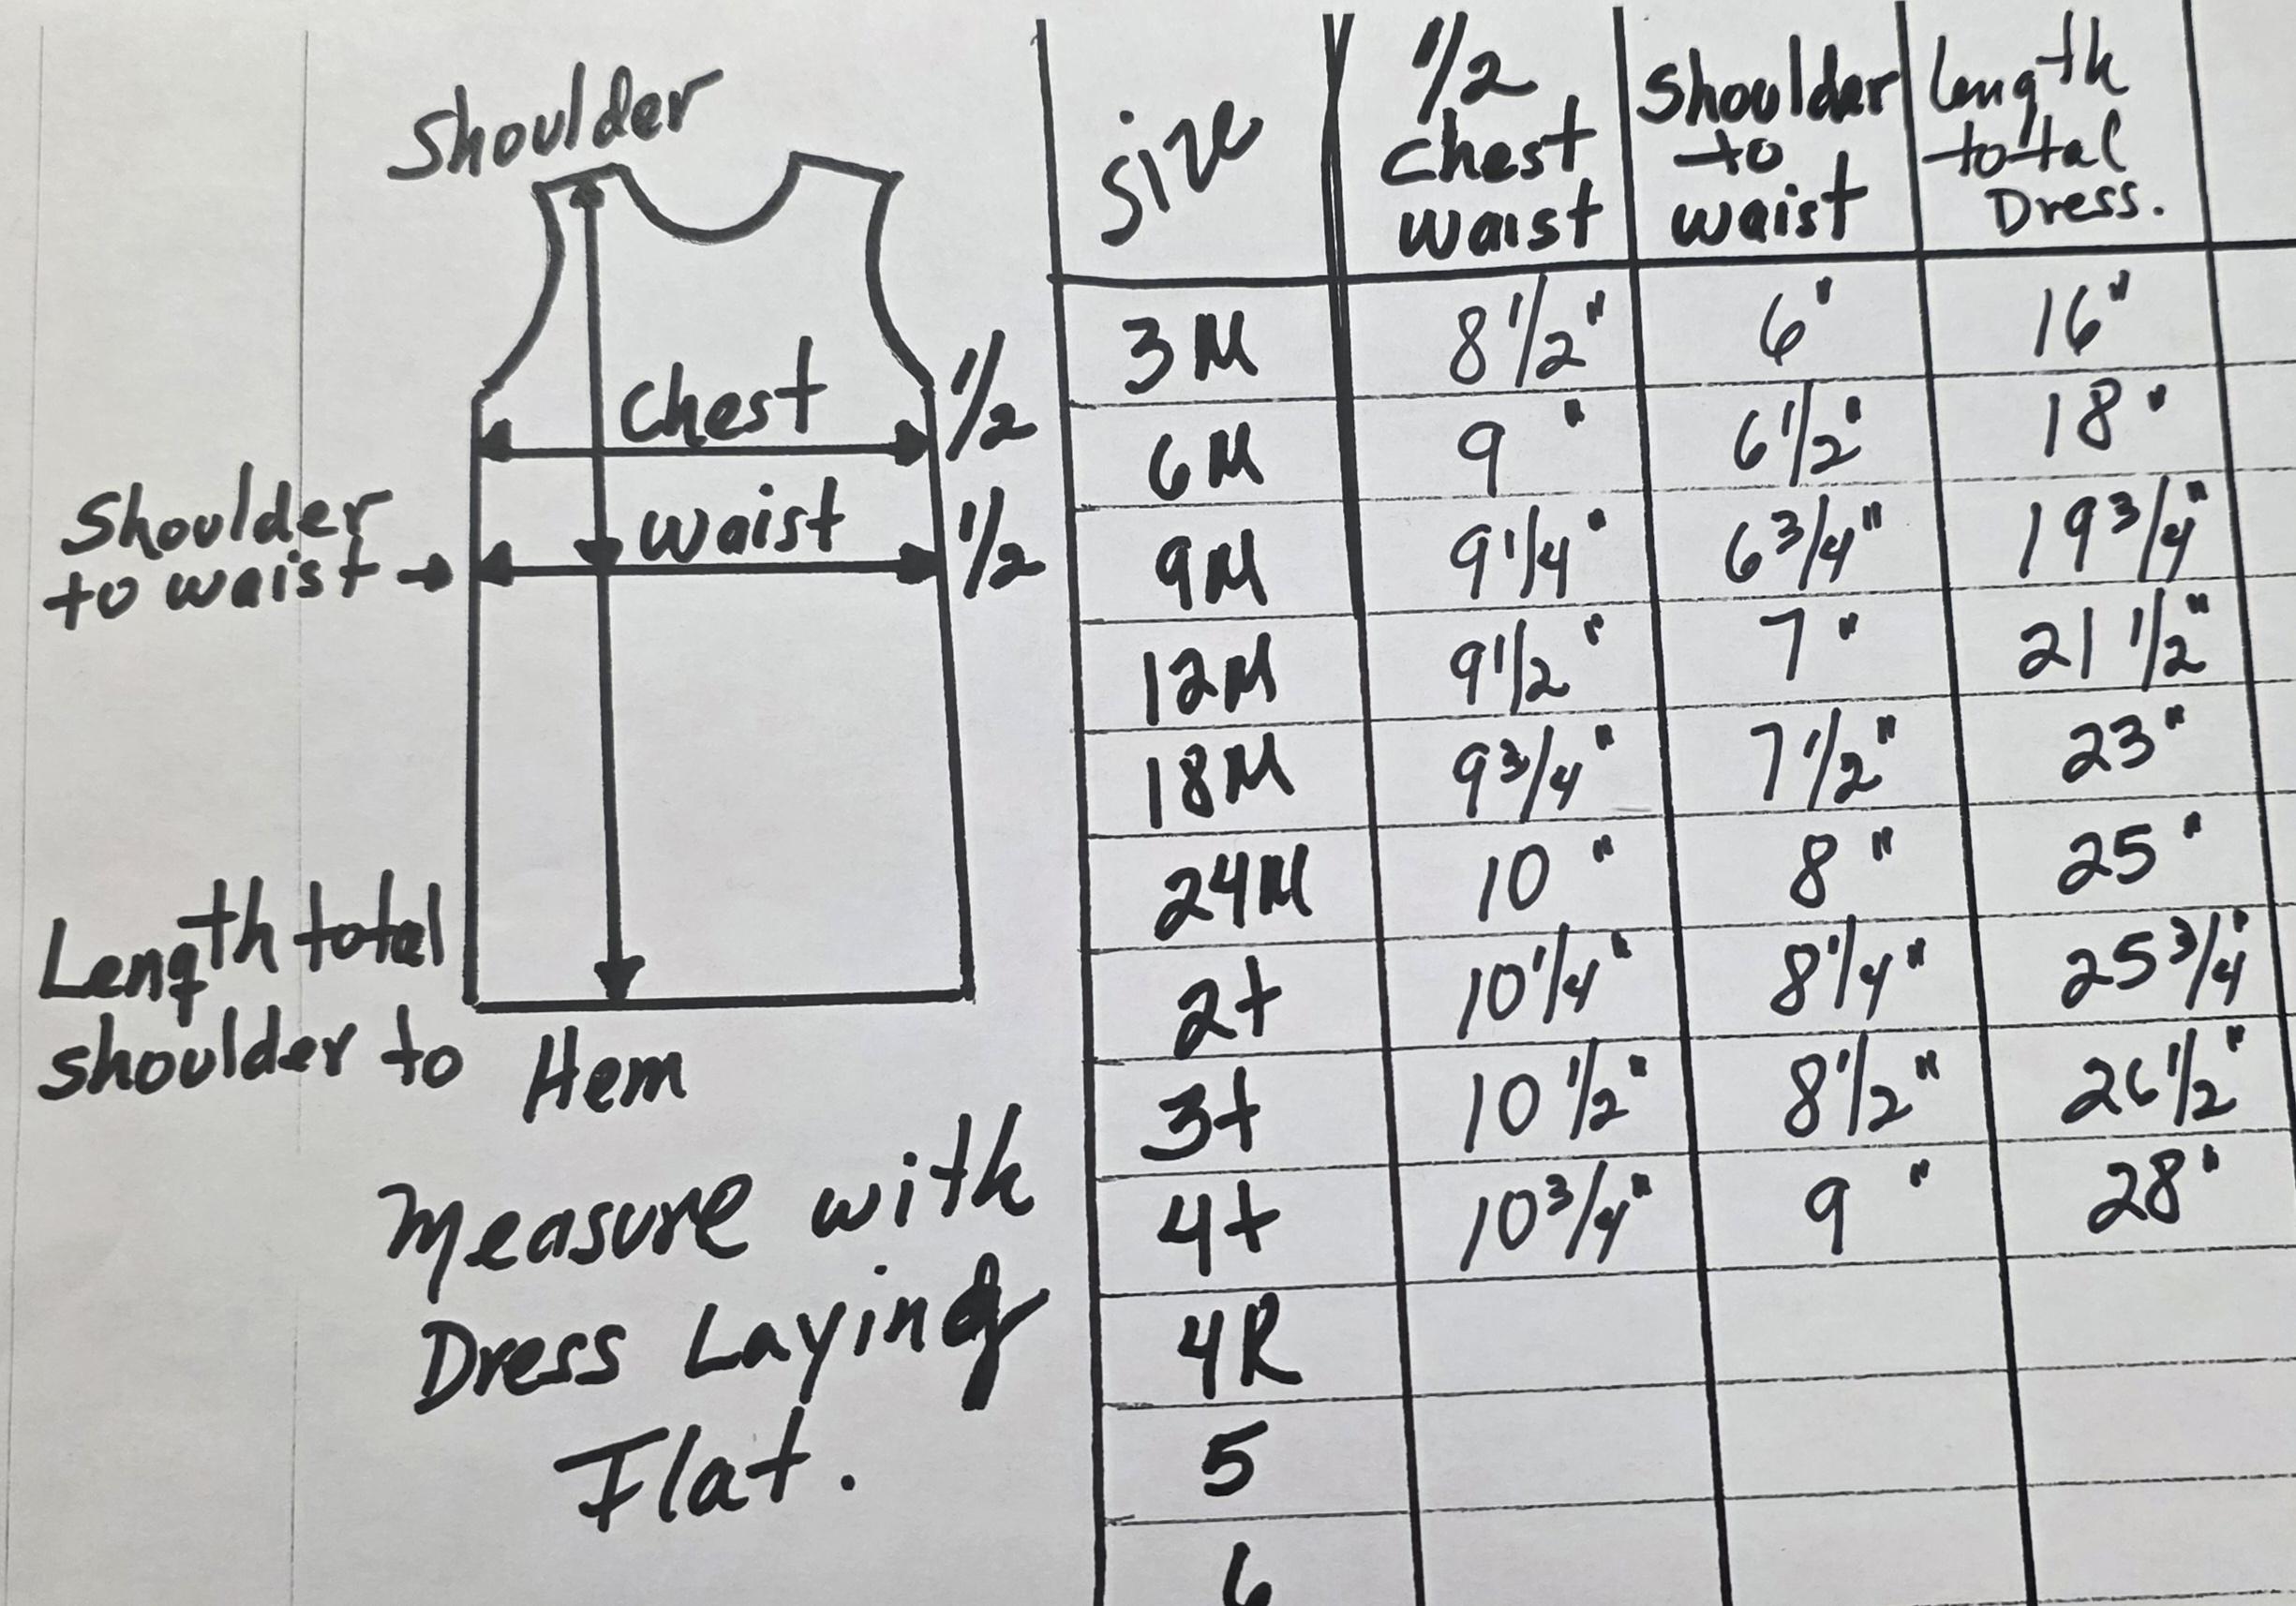 Shoulder
Chest 1/2
Waist 1/2
Shoulder
to waist
Length total
shoulder to Hem
Measure with
Dress Laying
Flat.
Size 1/2 Chest waist Shoulder to waist Length total Dress.
3M 8 1/2" 6" 16"
6M 9" 6 1/2" 18"
9M 9 1/4" 6 3/4" 19 3/4"
12M 9 1/2" 7" 21 1/2"
18M 9 3/4" 7 1/2" 23"
24M 10" 8" 25"
2t 10 1/4" 8 1/4" 25 3/4"
3t 10 1/2" 8 1/2" 26 1/2"
4t 10 3/4" 9" 28"
4R
5
6